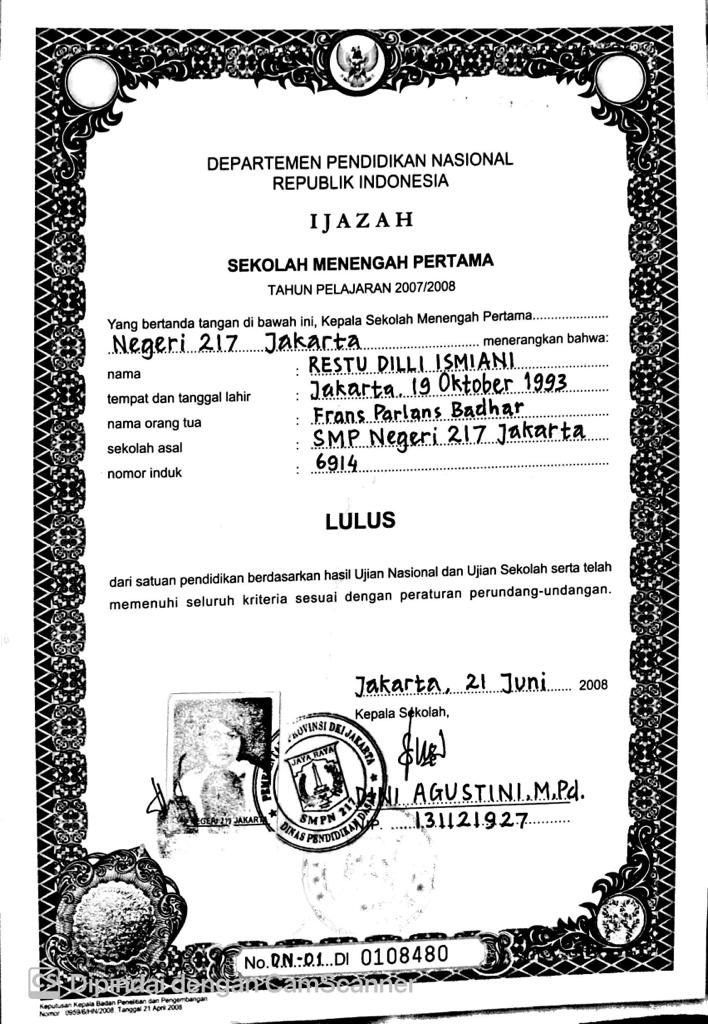 DEPARTEMEN PENDIDIKAN NASIONAL
REPUBLIK INDONESIA
IJAZAH
SEKOLAH MENENGAH PERTAMA
TAHUN PELAJARAN 2007/2008
Yang bertanda tangan di bawah ini, Kepala Sekolah Menengah Pertama
Negeri 217 Jakarta menerangkan bahwa:
nama : RESTU DILLI ISMIANI
tempat dan tanggal lahir : Jakarta, 19 Oktober 1993
nama orang tua : Frans Parlans Badhar
sekolah asal : SMP Negeri 217 Jakarta
nomor induk : 6914
LULUS
dari satuan pendidikan berdasarkan hasil Ujian Nasional dan Ujian Sekolah serta telah
memenuhi seluruh kriteria sesuai dengan peraturan perundang-undangan.
Jakarta, 21 Juni 2008
Kepala Sekolah,
PROVINSI DKI JAKARTA
JAYA RAYA
SMPN 217
DINAS PENDIDIKAN DASAR
AGUSTINI, M.Pd.
131121927
No. DN-01 DI 0108480
CS Dipindai dengan CamScanner
Keputusan Kepala Badan Penelitian dan Pengembangan
Nomor 0959/6/HN/2008 Tanggal 21 April 2008